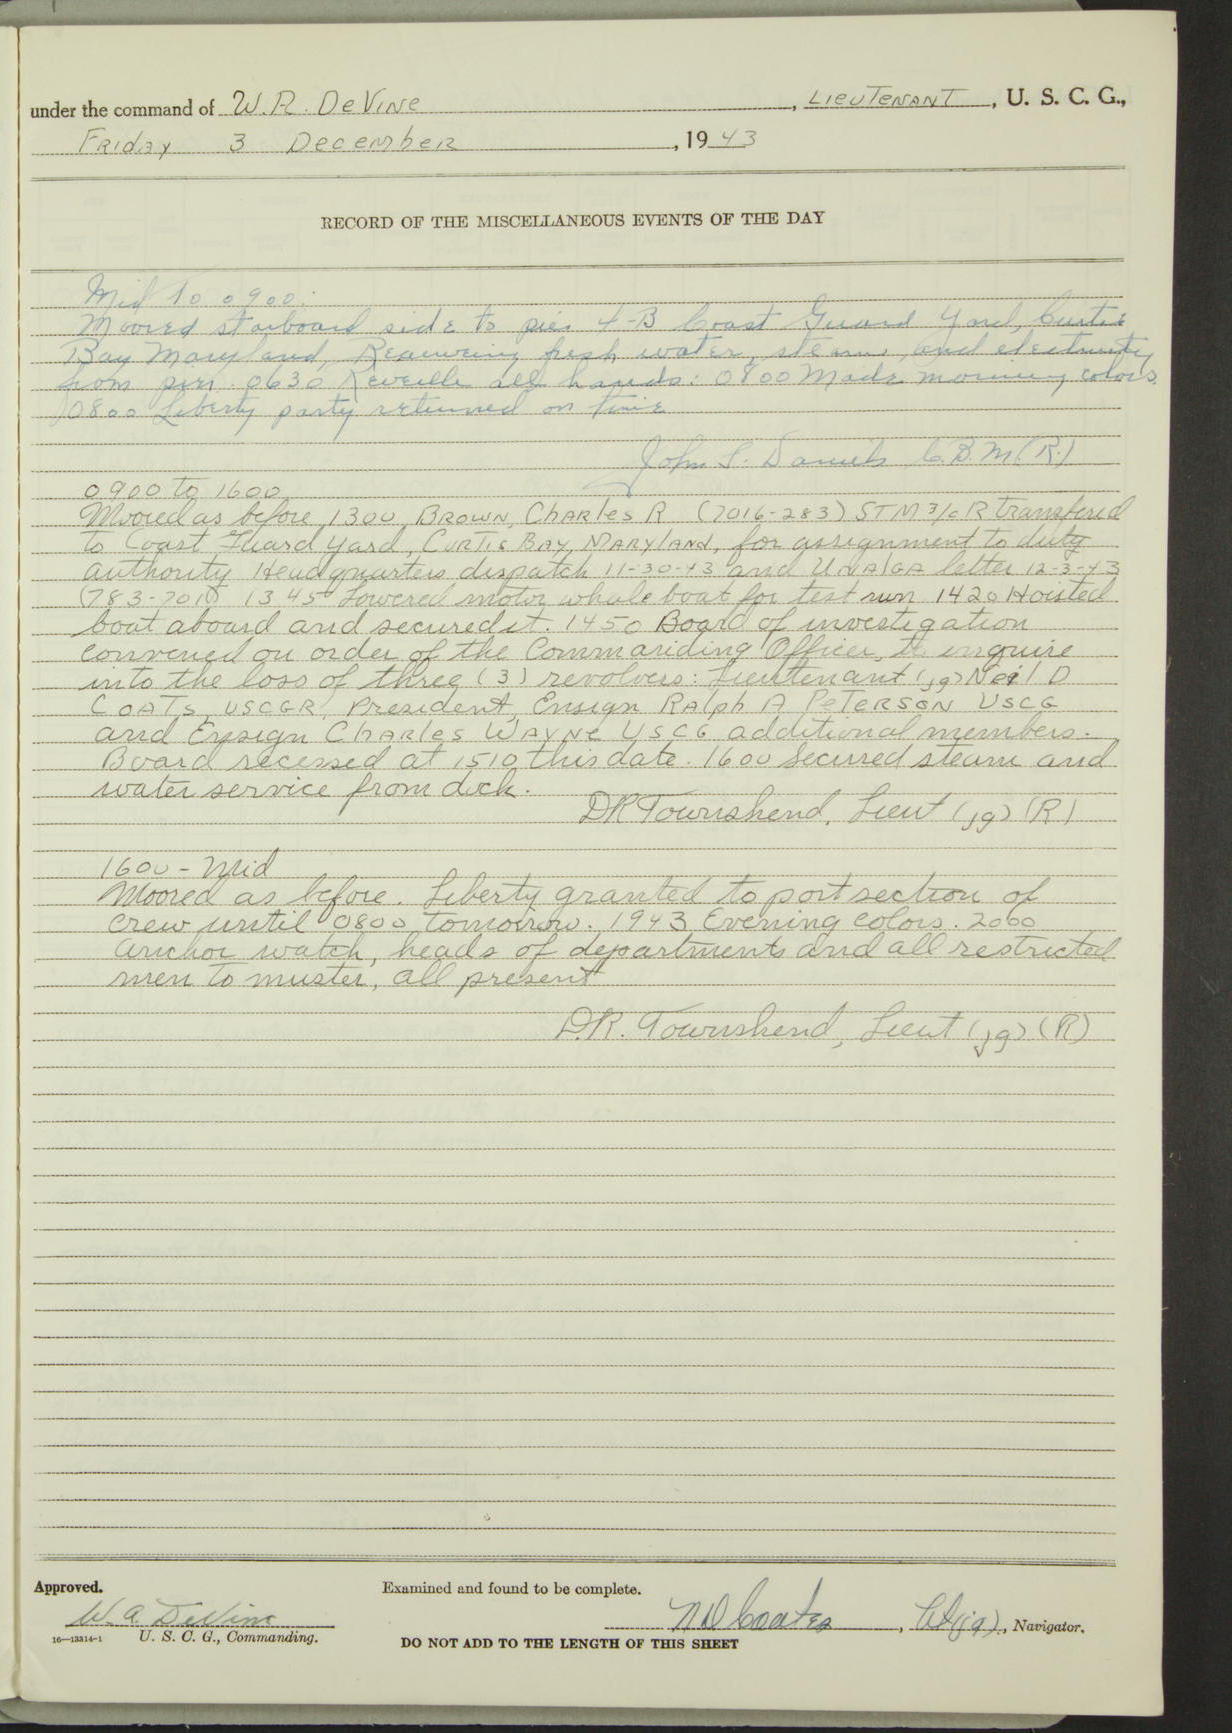 under the command of W. R. DeVine, Lieutenant, U. S. C. G.,
Friday 3 December, 1943
RECORD OF THE MISCELLANEOUS EVENTS OF THE DAY
Mid to 0900:
Moored starboard side to pier 4-B Coast Guard Yard, Curtis
Bay Maryland, Receiving fresh water, steam, and electricity
from pier. 0630 Reveille all hands: 0800 Made morning colors
0800 Liberty party returned on time
John S. Daniels C.B.M.(R.)
0900 to 1600
Moored as before, 1300, Brown, Charles R (7016-283) STM 3/c R transfered
to Coast Guard Yard, Curtis Bay, Maryland, for assignment to duty
authority Headquarters dispatch 11-30-43 and UNALGA letter 12-3-43
(783-701) 1345 Lowered motor whale boat for test run 1420 Hoisted
boat aboard and secured it. 1450 Board of investigation
convened on order of the Commanding Officer, to enquire
into the loss of three (3) revolvers: Lieutenant (jg) Neil D
COATS, USCGR, President, Ensign Ralph A PETERSON USCG
and Ensign Charles WAYNE USCG additional members.
Board recessed at 1510 this date. 1600 Secured steam and
water service from dock.
DR Townshend, Lieut (jg) (R)
1600 - Mid
Moored as before. Liberty granted to port section of
crew until 0800 tomorrow. 1943 Evening colors. 2000
anchor watch, heads of departments and all restricted
men to muster, all present
D.R. Townshend, Lieut (jg) (R)
Approved.
Examined and found to be complete.
W. A. DeVine
N D Coates, Lt(jg), Navigator.
16—13314-1 U. S. C. G., Commanding.
DO NOT ADD TO THE LENGTH OF THIS SHEET